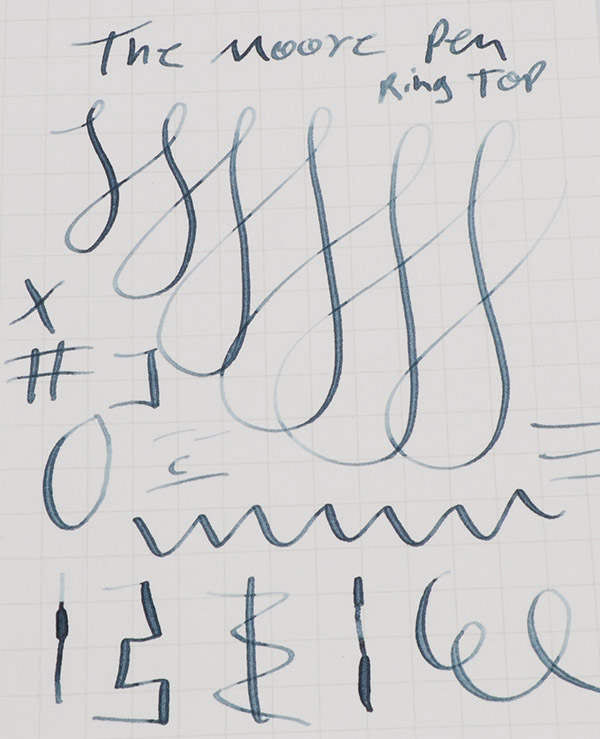 The Moore Pen
Ring Top